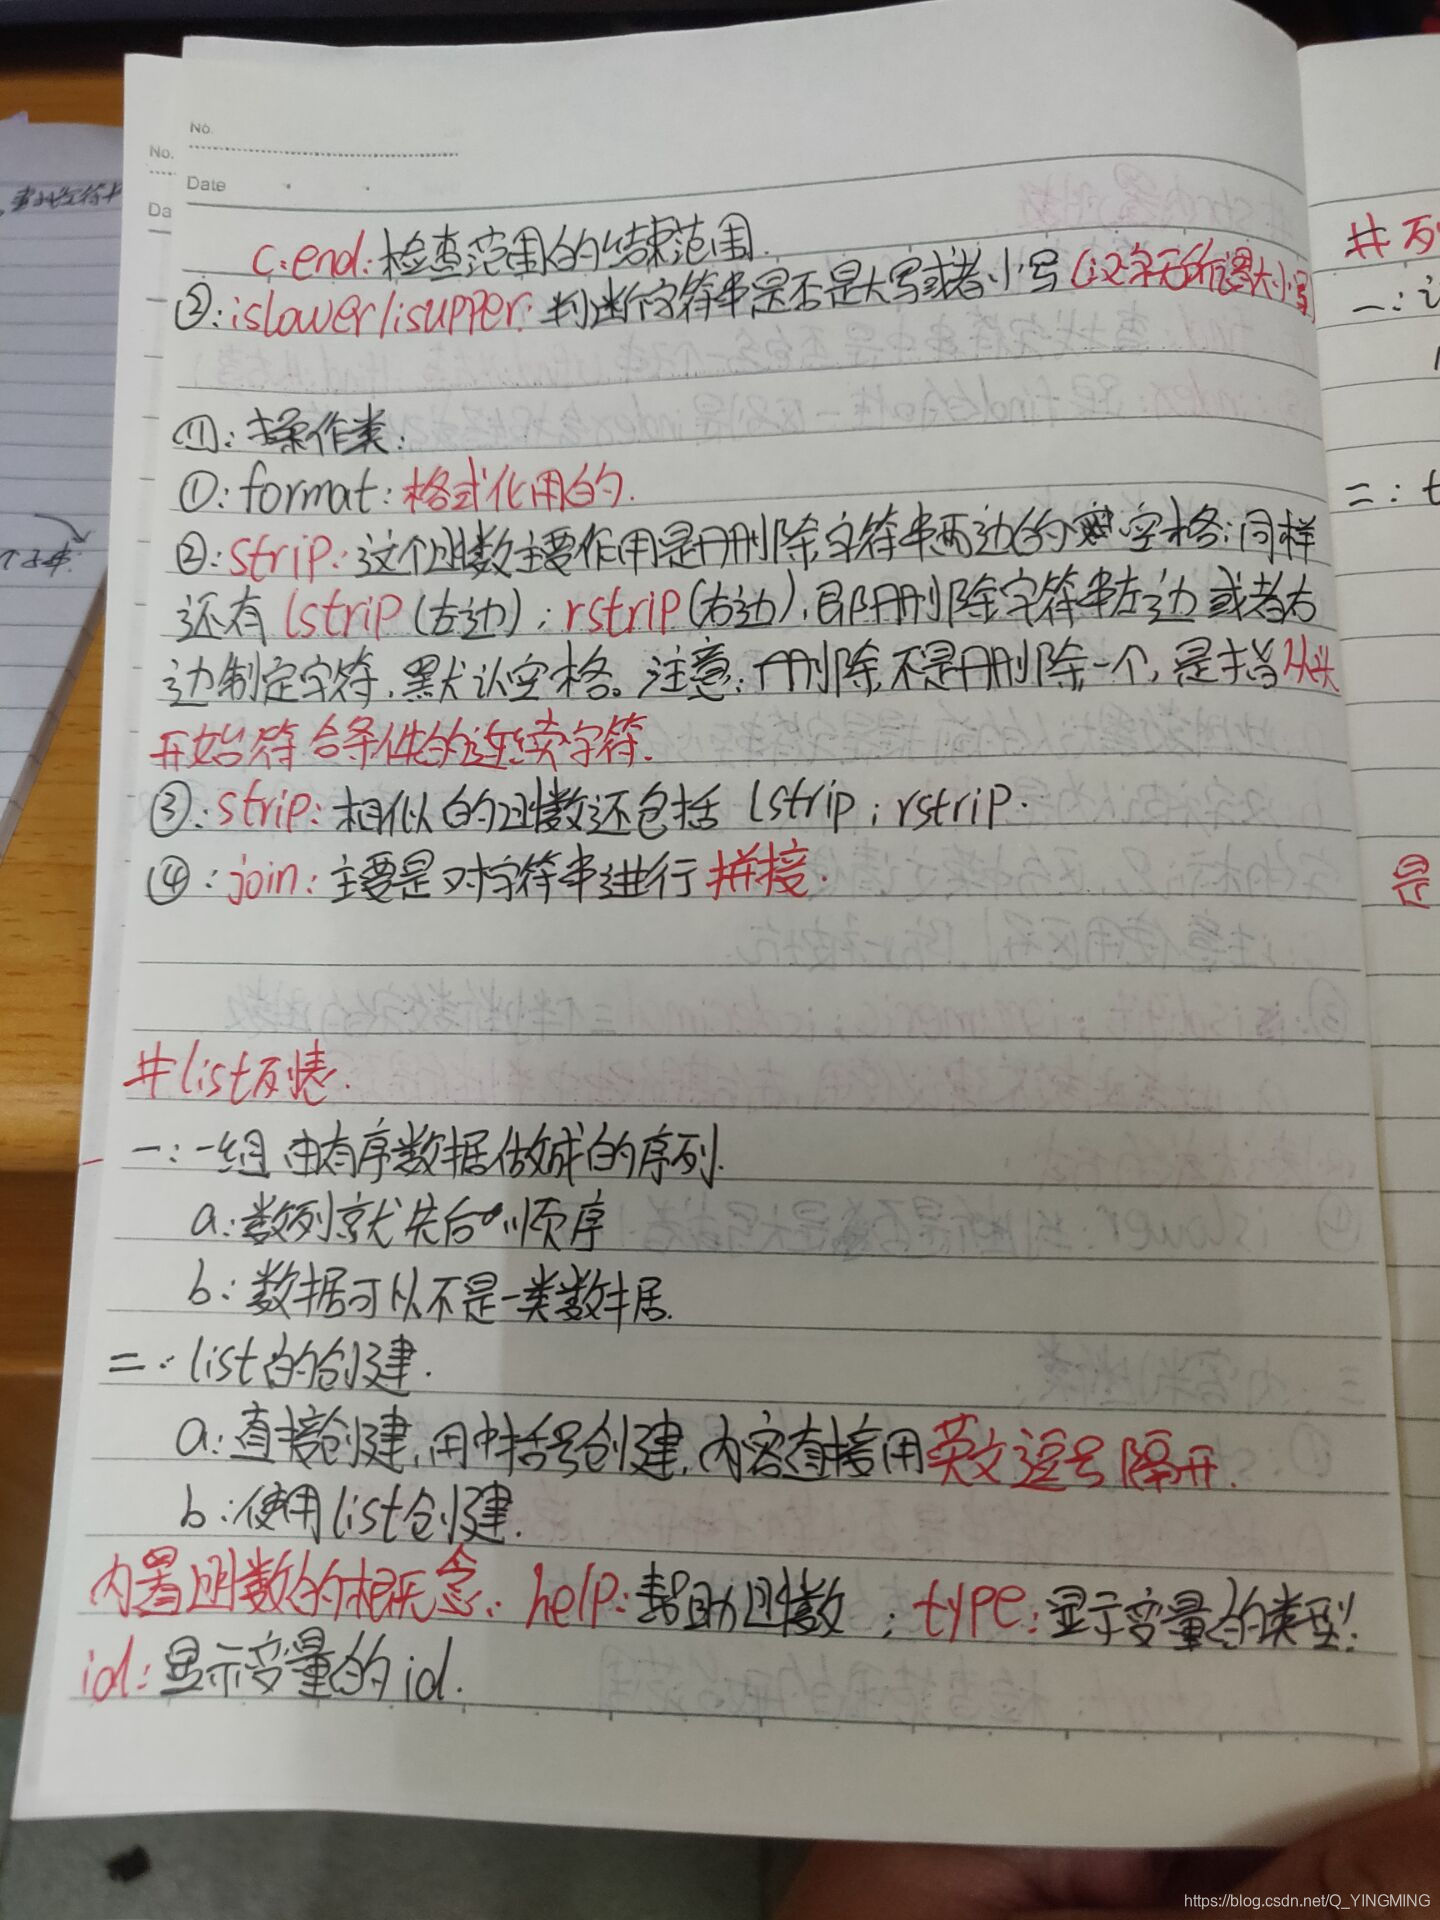 No.
No.
Date
Da
c:end:检查范围的结束范围.
②:islower/isupper:判断字符串是否是大写或者小写(汉字无所谓大小写)
四:操作类:
①:format:格式化用的.
②:strip:这个函数主要作用是删除字符串两边的空格;同样
还有lstrip(左边);rstrip(右边),即删除字符串左边或者右
边制定字符,默认空格。注意:删除,不是删除一个,是指从头
开始符合条件的连续字符.
③:strip:相似的函数还包括 lstrip;rstrip.
④:join:主要是对字符串进行拼接.
#list列表.
一:一组由有序数据做成的序列.
a:数列就先后顺序
b:数据可以不是一类数据.
二:list的创建.
a:直接创建,用中括号创建,内容直接用英文逗号隔开.
b:使用list创建.
内置函数的概念: help:帮助函数 ; type:显示变量的类型;
id:显示变量的id.
#列
一:
二:t
是
https://blog.csdn.net/Q_YINGMING